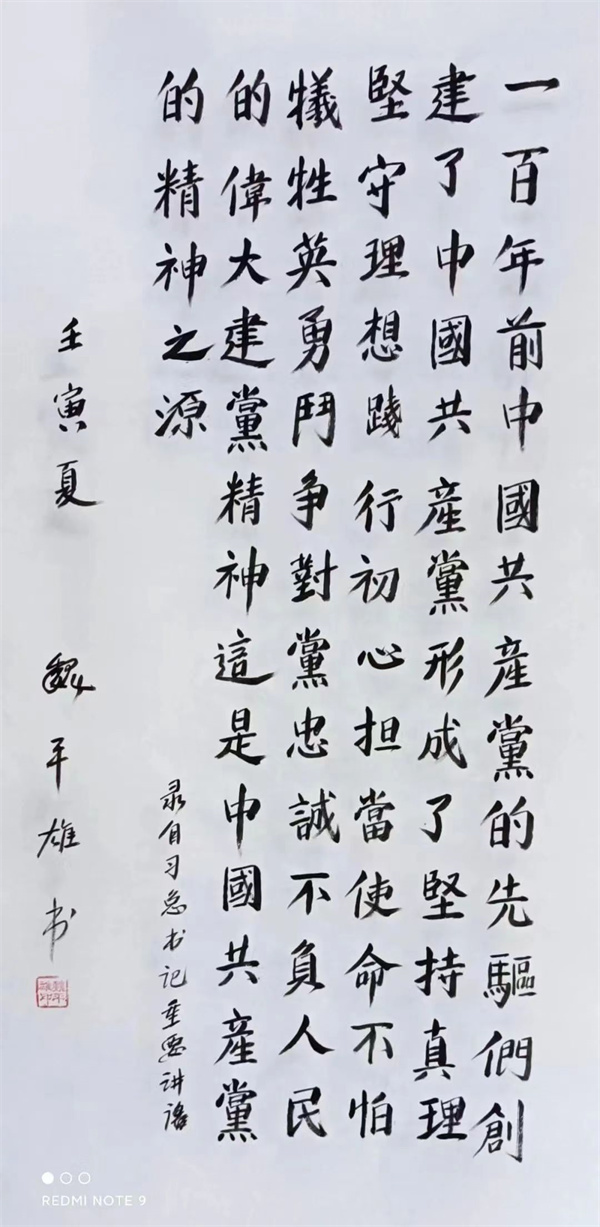 一百年前中國共產黨的先驅們創
建了中國共產黨形成了堅持真理
堅守理想踐行初心担當使命不怕
犠牲英勇鬥争對黨忠誠不負人民
的偉大建黨精神這是中國共產黨
的精神之源
录自习总书记重要讲话
壬寅夏
魏平雄书
REDMI NOTE 9